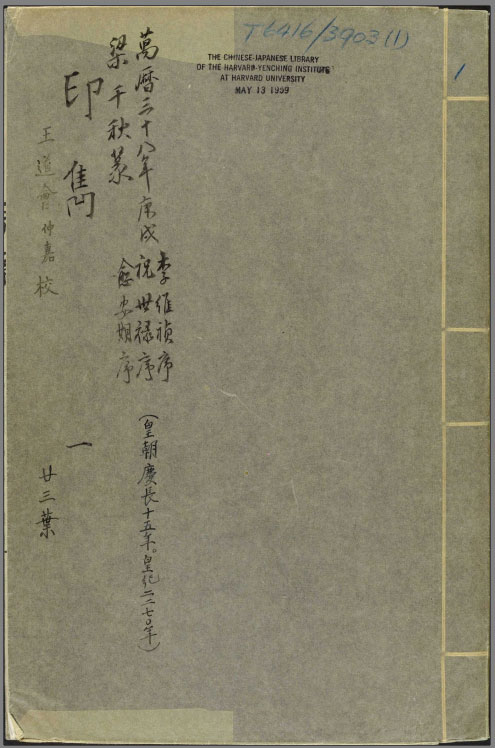 T6416/3903 (1)
THE CHINESE-JAPANESE LIBRARY
OF THE HARVARD-YENCHING INSTITUTE
AT HARVARD UNIVERSITY
MAY 13 1959
1
萬曆三十八年庚戌
李維禎序
祝世禄序
俞安期序
(皇朝慶長十五年。皇紀二二七〇年)
梁千秋篆
印雋 一
王道會仲嘉校
廿三葉